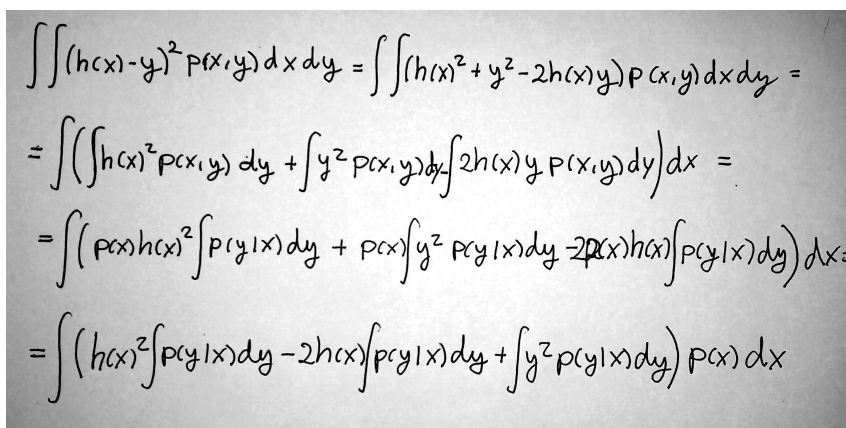 ∫∫(h(x)-y)² p(x,y) dx dy = ∫∫(h(x)² + y² - 2h(x)y) p(x,y) dx dy =
= ∫(∫h(x)² p(x,y) dy + ∫y² p(x,y) dy - ∫2h(x) y p(x,y) dy) dx =
= ∫(p(x)h(x)² ∫p(y|x) dy + p(x)∫y² p(y|x) dy - 2p(x)h(x)∫p(y|x) dy) dx =
= ∫(h(x)² ∫p(y|x) dy - 2h(x)∫p(y|x) dy + ∫y² p(y|x) dy) p(x) dx